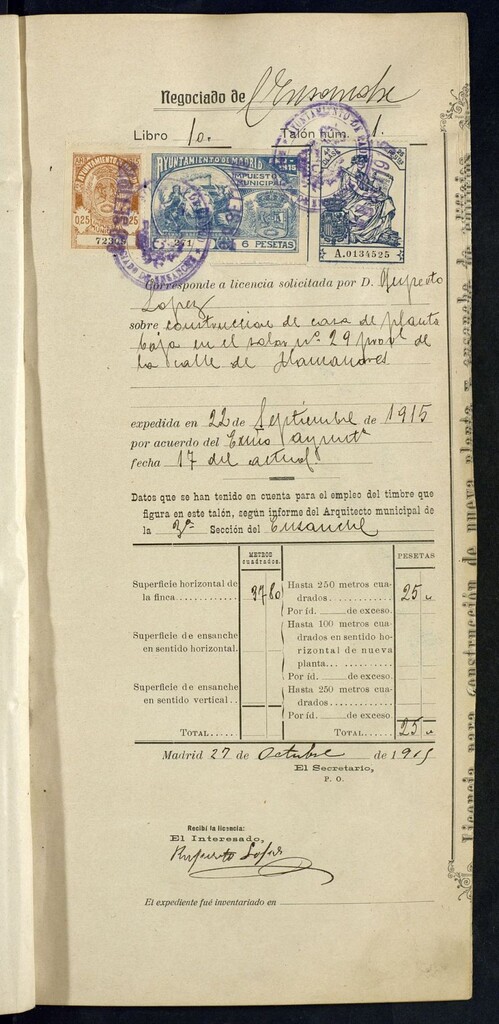 Negociado de Ensanche
Libro 1o. Talón núm. 1.
AYUNTAMIENTO
0'25
AYUNTAMIENTO DE MADRID 1915
IMPUESTO MUNICIPAL
6 PESETAS
A.0134525
Corresponde a licencia solicitada por D. Ruperto
Lopez
sobre construccion de casa de planta
baja en el solar nº. 29 provl de
la calle de
expedida en 22 de Septiembre de 1915
por acuerdo del Exmo Ayuntº
fecha 17 del actual
Datos que se han tenido en cuenta para el empleo del timbre que
figura en este talón, según informe del Arquitecto municipal de
la 3ª Sección del Ensanche
METROS cuadrados. PESETAS
Superficie horizontal de
la finca............ 37 80
Hasta 250 metros cua-
drados............ 25 "
Por íd. ____ de exceso.
Superficie de ensanche
en sentido horizontal.
Hasta 100 metros cua-
drados en sentido ho-
rizontal de nueva
planta............
Por íd. ____ de exceso.
Superficie de ensanche
en sentido vertical..
Hasta 250 metros cua-
drados............
Por íd. ____ de exceso.
TOTAL..... TOTAL....... 25 "
Madrid 27 de Octubre de 1915
El Secretario,
P. O.
Recibí la licencia:
El Interesado,
Ruperto Lopez
El expediente fué inventariado en
Licencia para construcción de nueva planta y ensanche de